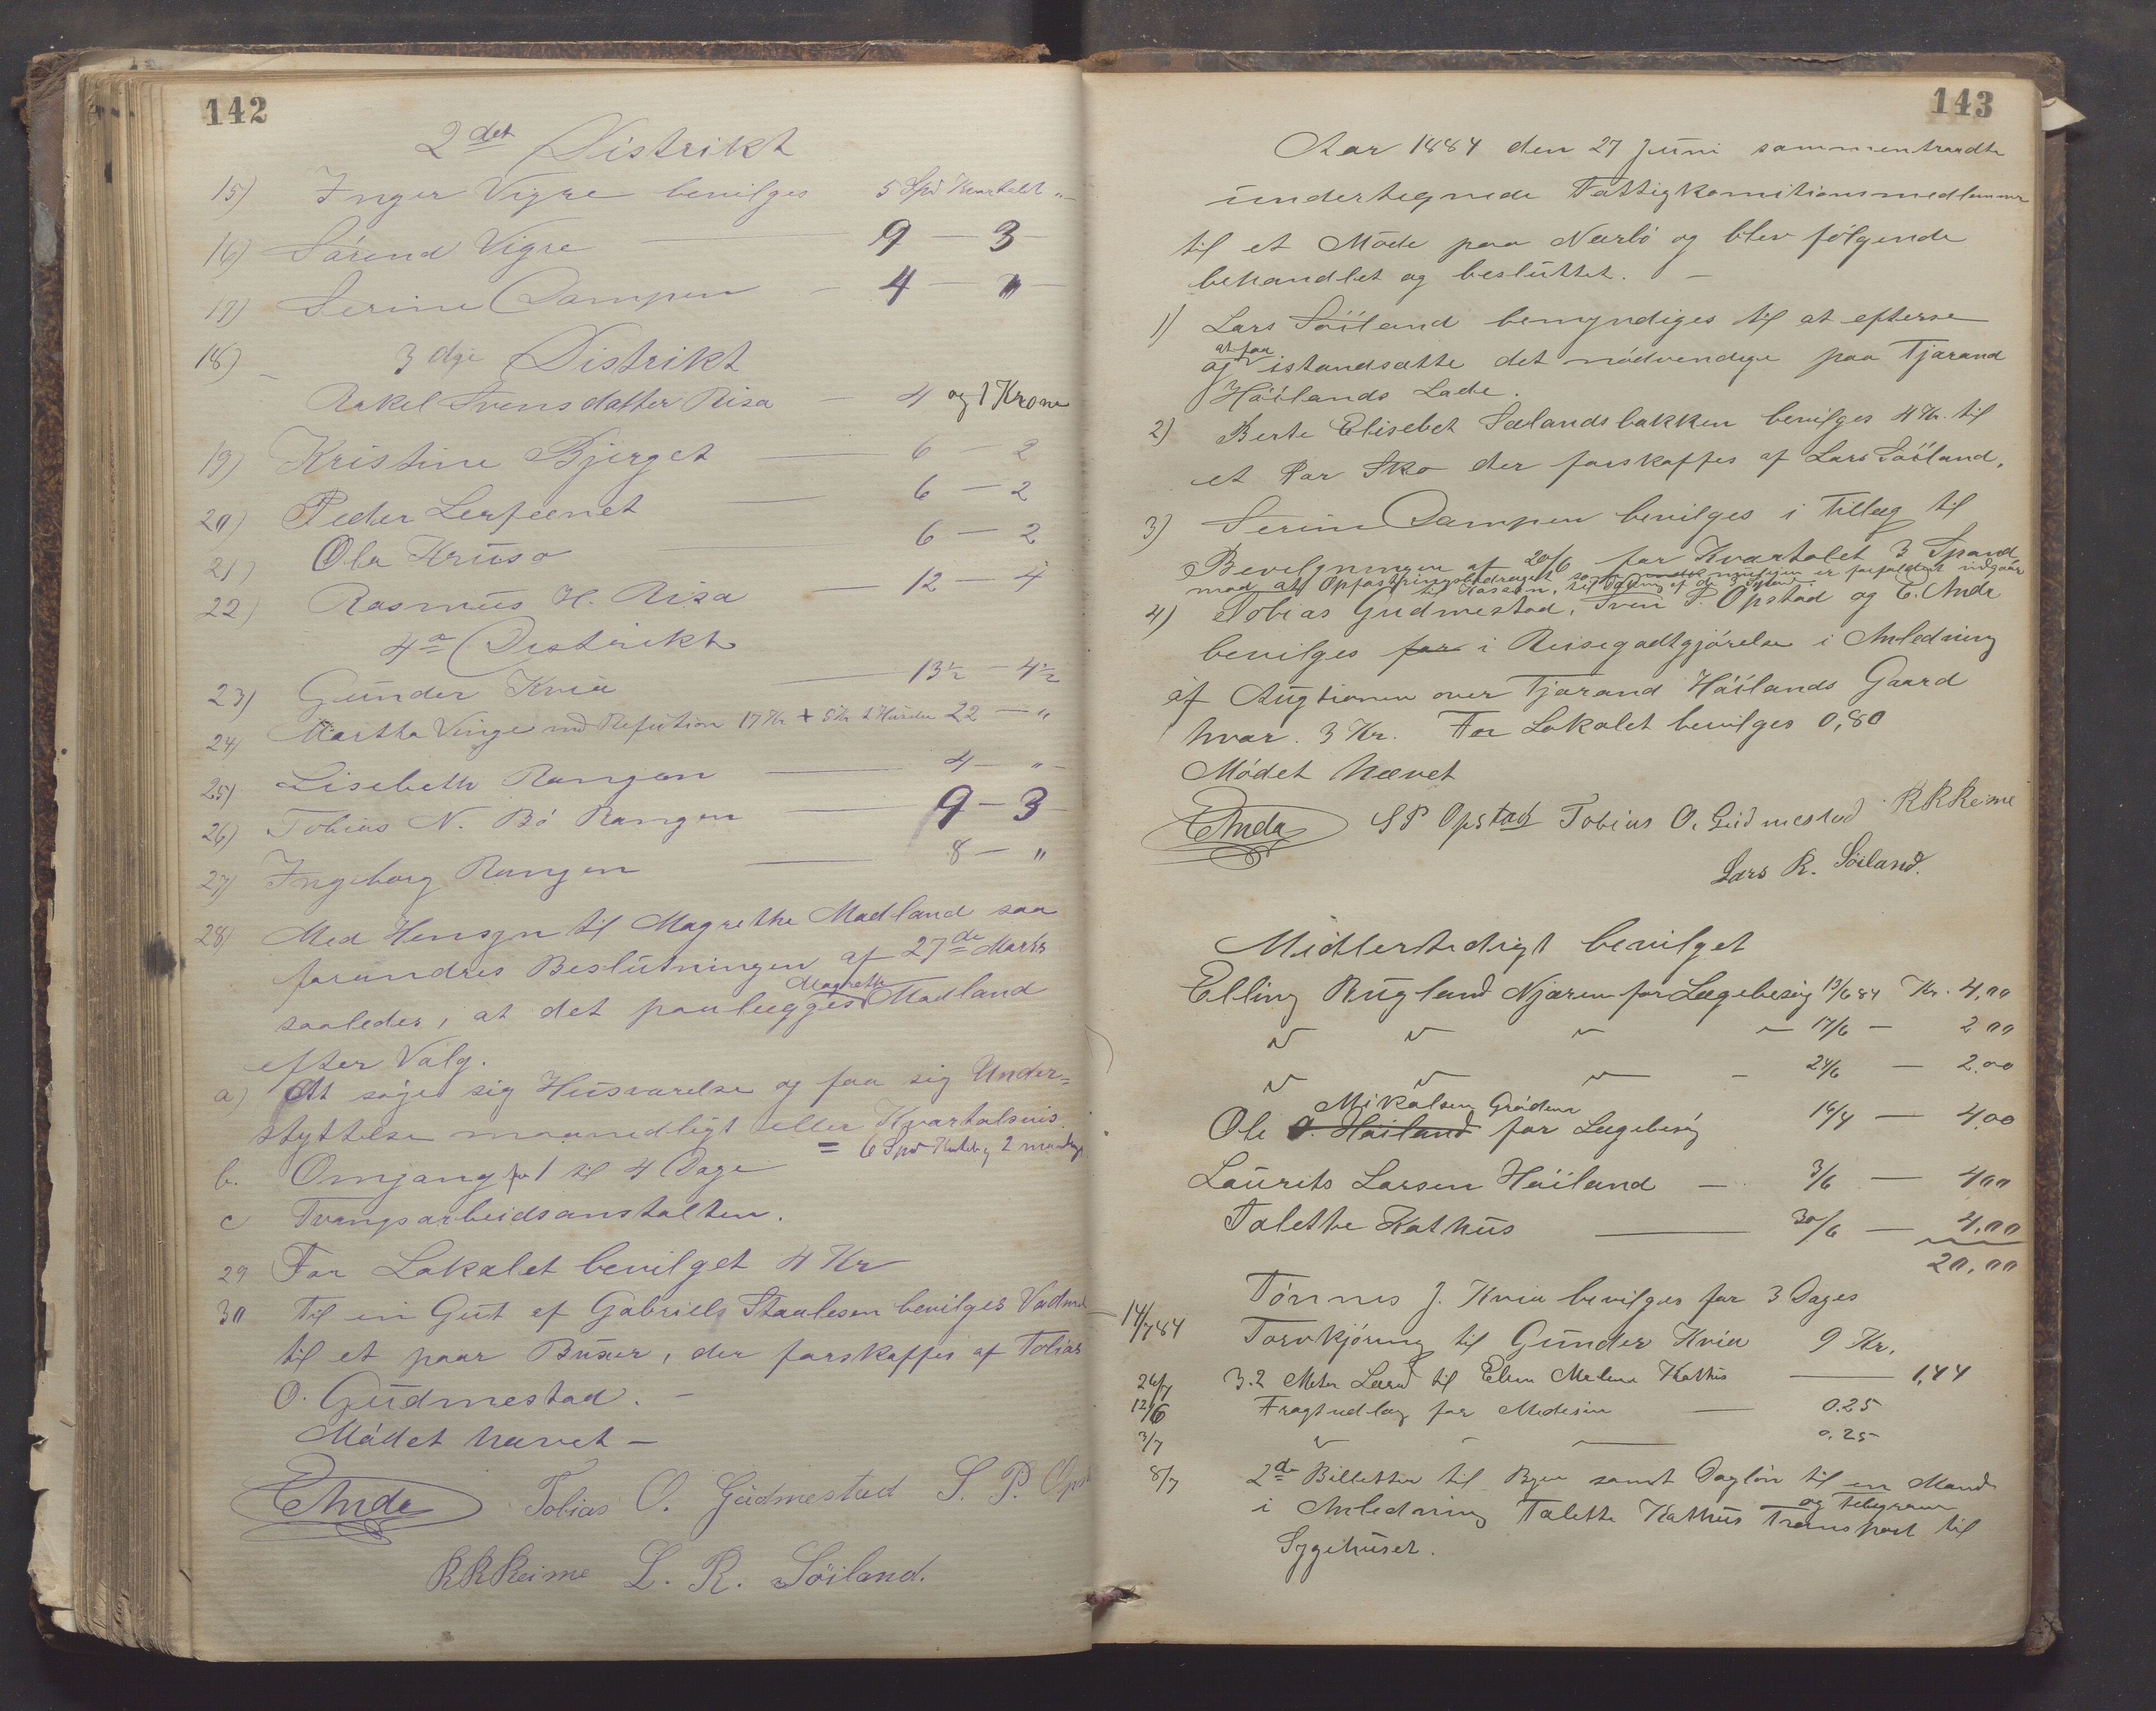 142
2det Distrikt
15) Inger Vigre bevilges 5 Spd Kvartalet "
16) Sørend Vigre — 9 — 3
17) Serine Dampen — 4 — "
18) 3dje Distrikt
Rakel Svensdatter Risa — 4 og 1 Krone
19) Kristine Bjerget — 6 — 2
20) Peder Lerpeenet — 6 — 2
21) Ola Kruse — 6 — 2
22) Rasmus H. Risa — 12 — 4
4de Distrikt
23) Gunder Kvia — 13½ — 4½
24) Martha Vinge md Refution 17 Kr + 5 Kr 22 — "
25) Lisebeth Rangen — 4 — "
26) Tobias N. Bø Rangen — 9 — 3
27) Ingeborg Rangen — 8 — "
28) Med Hensyn til Magrethe Madland saa
forandres Beslutningen af 27de Marts
saaledes, at det paalægges Magrethe Madland
efter Valg.
a) At søge sig Husværelse og faa sig Under=
støttelse maanedligt eller Kvartalsvis.
= 6 Spd
b. Omgang fra 1 til 4 Dage
c Tvangsarbeidsanstalten.
29 For Lokalet bevilget 4 Kr
30 Til en Gut af Gabriels Staalesen bevilges Vadmel
til et paar Buxer, der forskaffes af Tobias
O. Gudmestad. –
Mødet hævet –
E Anda Tobias O. Gudmestad S. P. Opst
R R Reime L. R. Söiland.
143
Aar 1884 den 27 Juni sammentraadte
undertegnede Fattigkomitionsmedlemmer
til et Møde paa Nærbø og blev følgende
behandlet og besluttet. –
1) Lars Söiland bemyndiges til at efterse
og at faa istandsatte det nødvendige paa Tjærand
Høilands Lade.
2) Berte Elisebet Sælandsbakken bevilges 4 Kr. til
et Par Sko der forskaffes af Lars Söiland.
3) Serine Dampen bevilges i Tillæg til
Bevilgningen af 20/6 for Kvartalet 3 Spand
mod at Opfostringsbidraget som er forfaldent indgaar
til Kassen, til Dækning af de 3 Spand.
4) Tobias Gudmestad, Sven P. Opstad og E. Anda
bevilges for i Reisegodtgjørelse i Anledning
af Augtionen over Tjærand Høilands Gaard
hvar. 3 Kr. For Lokalet bevilges 0,80
Mødet hævet
E Anda S P Opstad Tobias O. Gudmestad R R Reime
Lars R. Söiland.
Midlertidigt bevilget
Elling Rugland Njæren for Lægebesøg 13/6 84 Kr. 4,00
" " " — 17/6 — 2 00
" " " — 24/6 — 2.00
Mikalsen Grødem
Ole O. Høiland for Lægebesøg 16/4 — 4.00
Laurits Larsen Høiland — 3/6 — 4 00
Talette Kathus — 30/6 — 4,00
20,00
Tönnes J. Kvia bevilges for 3 Dages
14/7 84 Torvkjøring til Gunder Kvia 9 Kr.
26/7 3.2 Meter Lærred til Elen Malene Kathus — 1,44
12/6 Fragtudlæg for Medesin — 0.25
3/7 " – — 0.25
8/7 2de Billetter til Byen samt Dagløn til en Mand
og telegram
i Anledning Talette Kathus Transport til
Sygehuset.